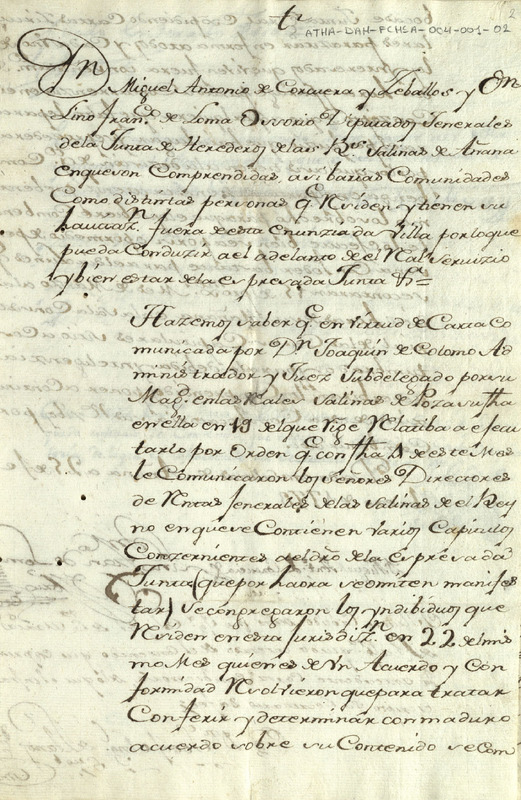 t.
ATHA-DAH-FCHSA-004-001-02
2
Dn Miguel Antonio de Corcuera y Zeballos y Dn
Lino franco. de Loma Ossorio Diputados Jenerales
de la Junta de Herederos de las Rs. Salinas de Añana
en que son Comprendidas, asi barias Comunidades
Como distintas personas q.e Rsiden y tienen su
hauitazn. fuera de esta enunziada Villa por lo que
pueda Conduzir a el adelanto de el Ral. Servizio
y bien estar de la expresada Junta &a=
Hazemos saber q.e en virtud de Carta Co
municada por Dn. Joaquin de Colomo Ad
ministrador y Juez Subdelegado por su
Magd. en las Rales Salinas de Poza su fha
en ella en 19 del que rige Rlatiba a ejecu
tarlo por Orden q.e con fha 4 de este Mes
le Comunicaron los señores Directores
de Rntas Jenerales de las Salinas de el Rey
no en que se Contienen varios Capitulos
Conzernientes a el dro de la Expresada
Junta (que por haora se omiten manifes
tar) se congregaron los yndibiduos que
Rsiden en esta Jurisdizn. en 22 del mis
mo Mes quienes de Vn Acuerdo y Con
formidad Rsolvieron que para tratar
Conferir y determinar con maduro
acuerdo sobre su Contenido se Com